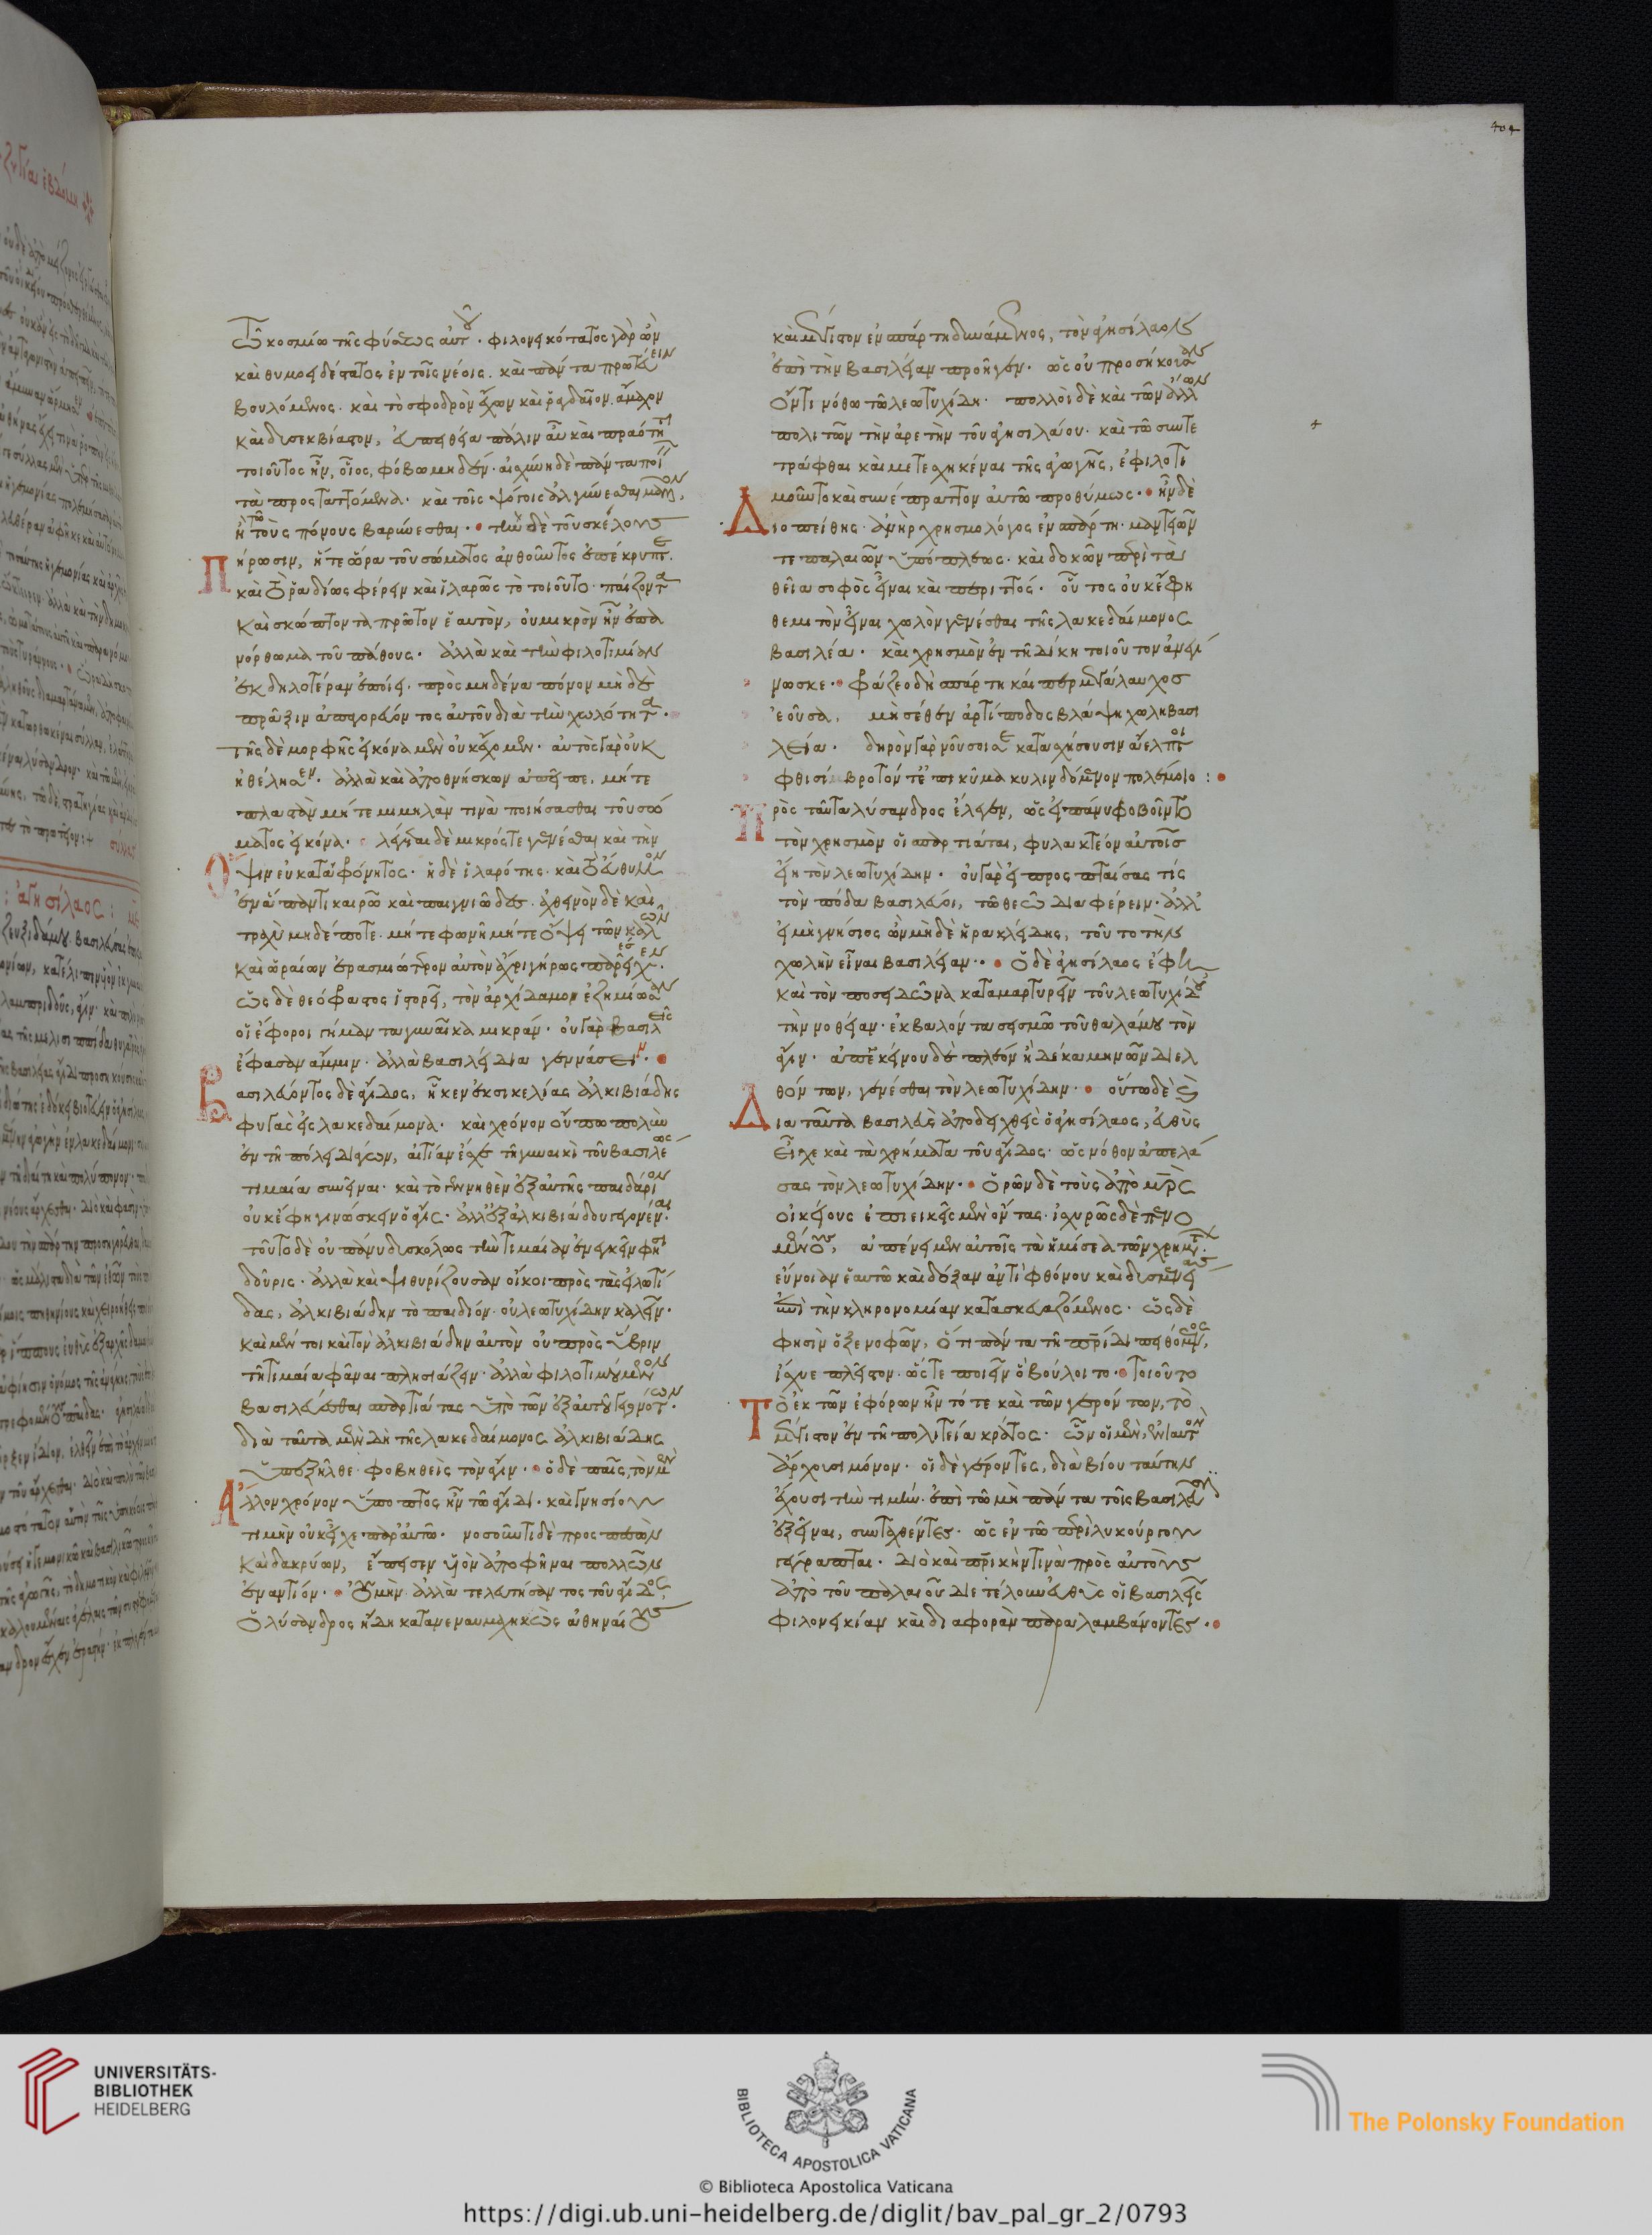 : ἀγησίλαος :
404
τῶ κοσμίω τῆς φύσεως αὐτοῦ · φιλονεικότατος γὰρ ὢν
καὶ θυμοειδέστατος ἐν τοῖς νέοις · καὶ πάντα πρωτεύειν
βουλόμενος · καὶ τὸ σφοδρὸν ἔχων καὶ ῥαγδαῖον ἄμαχον
καὶ δυσεκβίαστον, εὐπειθεία πάλιν αὖ καὶ πραότητι
τοιοῦτος ἦν, οἷος, φόβω μηδὲν · αἰσχύνη δὲ πάντα ποιεῖν
τὰ προσταττόμενα · καὶ τοῖς ψόγοις ἀλγύνεσθαι μᾶλλον,
ἢ τοὺς πόνους βαρύνεσθαι · τὴν δὲ τοῦ σκέλους
πήρωσιν, ἥ τε ὥρα τοῦ σώματος ἀνθοῦντος ἐπέκρυπτε ·
καὶ τὸ ῥαδίως φέρειν καὶ ἱλαρῶς τὸ τοιοῦτο · παίζοντα
καὶ σκώπτοντα πρῶτον ἑαυτὸν, οὐ μικρὸν ἦν ἐπα
νόρθωμα τοῦ πάθους · ἀλλὰ καὶ τὴν φιλοτιμίαν
ἐκδηλοτέραν ἐποίει · πρὸς μηδένα πόνον μηδὲ
πρᾶξιν ἀπαγορεύοντος αὐτοῦ διὰ τὴν χωλότητα ·
τῆς δὲ μορφῆς εἰκόνα μὲν οὐκ ἔχομεν · αὐτὸς γὰρ οὐκ
ἠθέλησεν · ἀλλὰ καὶ ἀποθνήσκων ἀπεῖπε, μήτε
πλαστὰν μήτε μιμηλάν τινα ποιήσασθαι τοῦ σώ
ματος εἰκόνα · λέγεται δὲ μικρός τε γενέσθαι καὶ τὴν
ὄψιν εὐκαταφρόνητος · ἡ δὲ ἱλαρότης · καὶ τὸ εὔθυμον
ἐν ἅπαντι καιρῶ καὶ παιγνιῶδες · ἀχθεινὸν δὲ καὶ
τραχὺ μηδέποτε · μήτε φωνῆ μήτε ὄψει τῶν καλῶν
καὶ ὡραίων ἐρασμιώτερον αὐτὸν ἄχρι γήρως παρεῖχεν ·
ὡς δὲ θεόφραστος ἱστορεῖ, τὸν ἀρχίδαμον ἐζημίωσαν
οἱ ἔφοροι γήμαντα γυναῖκα μικράν · οὐ γὰρ βασιλεῖς
ἔφασαν ἄμμιν · ἀλλὰ βασιλείδια γεννάσει ·
βασιλεύοντος δὲ ἄγιδος, ἧκεν ἐκ σικελίας ἀλκιβιάδης
φυγὰς εἰς λακεδαίμονα · καὶ χρόνον οὔπω πολὺν
ἐν τῆ πόλει διάγων, αἰτίαν ἔσχε τῆ γυναικὶ τοῦ βασιλέως
τιμαία συνεῖναι · καὶ τὸ γεννηθὲν ἐξ αὐτῆς παιδάριον
οὐκ ἔφη γινώσκειν ὁ ἄγις · ἀλλ' ἐξ ἀλκιβιάδου γεγονέναι ·
τοῦτο δὲ οὐ πάνυ δυσκόλως τὴν τιμαίαν ἐνεγκεῖν φησὶ
δοῦρις · ἀλλὰ καὶ ψιθυρίζουσαν οἴκοι πρὸς τὰς εἱλωτί
δας, ἀλκιβιάδην τὸ παιδίον · οὐ λεωτυχίδην καλεῖν ·
καὶ μέντοι καὶ τὸν ἀλκιβιάδην αὐτὸν οὐ πρὸς ὕβριν
τῆ τιμαία φάναι πλησιάζειν · ἀλλὰ φιλοτιμούμενον
βασιλεύεσθαι σπαρτιάτας ὑπὸ τῶν ἐξ αὐτοῦ γεγονότων ·
διὰ ταῦτα μὲν δὴ τῆς λακεδαίμονος ἀλκιβιάδης
ὑπεξῆλθε φοβηθεὶς τὸν ἄγιν · ὁ δὲ παῖς, τὸν μὲν
ἄλλον χρόνον ὕποπτος ἦν τῶ ἄγιδι · καὶ γνησίου
τιμὴν οὐκ εἶχε παρ' αὐτῶ · νοσοῦντι δὲ προσπεσὼν
καὶ δακρύων, ἔπεισεν υἱὸν ἀποφῆναι πολλῶν
ἐναντίον · οὐ μὴν ἀλλὰ τελευτήσαντος τοῦ ἄγιδος,
ὁ λύσανδρος ἤδη καταναυμαχηκὼς ἀθηναίους
καὶ μέγιστον ἐν σπάρτη δυνάμενος, τὸν ἀγησίλαον
ἐπὶ τὴν βασιλείαν προῆγεν · ὡς οὐ προσήκουσαν
ὄντι νόθω τῶ λεωτυχίδη · πολλοὶ δὲ καὶ τῶν ἄλλων
πολιτῶν τὴν ἀρετὴν τοῦ ἀγησιλάου · καὶ τῶ συντε
τράφθαι καὶ μετεσχηκέναι τῆς ἀγωγῆς, ἐφιλοτι
μοῦντο καὶ συνέπραττον αὐτῶ προθύμως · ἦν δὲ
διοπείθης ἀνὴρ χρησμολόγος ἐν σπάρτη · μαντειῶν
τε παλαιῶν ὑπόπλεως · καὶ δοκῶν περὶ τὰ
θεῖα σοφὸς εἶναι καὶ περιττός · οὗτος οὐκ ἔφη
θεμιτὸν εἶναι χωλὸν γενέσθαι τῆς λακεδαίμονος
βασιλέα · καὶ χρησμὸν ἐν τῆ δίκη τοιοῦτον ἀνεγί
νωσκε · φράζεο δὴ σπάρτη καίπερ μεγάλαυχος
ἐοῦσα, μὴ σέθεν ἀρτίποδος βλάψη χωλὴ βασι
λεία · δηρὸν γὰρ νοῦσοί σε κατασχήσουσιν ἄελπτοι
φθισίβροτόν τ' ἐπὶ κῦμα κυλινδόμενον πολέμοιο :
πρὸς ταῦτα λύσανδρος ἔλεγεν, ὡς εἰ πάνυ φοβοῖντο
τὸν χρησμὸν οἱ σπαρτιάται, φυλακτέον αὐτοῖς
εἴη τὸν λεωτυχίδην · οὐ γὰρ εἰ προσπταίσας τις
τὸν πόδα βασιλεύοι, τῶ θεῶ διαφέρειν · ἀλλ'
εἰ μὴ γνήσιος ὢν μηδὲ ἡρακλείδης, τοῦτο τὴν
χωλὴν εἶναι βασιλείαν · ὁ δὲ ἀγησίλαος ἔφη
καὶ τὸν ποσειδῶνα καταμαρτυρεῖν τοῦ λεωτυχίδου
τὴν νοθείαν · ἐκβαλόντα σεισμῶ τοῦ θαλάμου τὸν
ἄγιν · ἀπ' ἐκείνου δὲ πλέον ἢ δέκα μηνῶν διελ
θόντων, γενέσθαι τὸν λεωτυχίδην · οὕτω δὲ καὶ
διὰ ταῦτα βασιλεὺς ἀποδειχθεὶς ὁ ἀγησίλαος, εὐθὺς
εἶχε καὶ τὰ χρήματα τοῦ ἄγιδος · ὡς νόθον ἀπελά
σας τὸν λεωτυχίδην · ὁρῶν δὲ τοὺς ἀπὸ μητρὸς
οἰκείους ἐπιεικεῖς μὲν ὄντας · ἰσχυρῶς δὲ πενο
μένους, ἀπένειμεν αὐτοῖς τὰ ἡμίσεα τῶν χρημάτων ·
εὔνοιαν ἑαυτῶ καὶ δόξαν ἀντὶ φθόνου καὶ δυσμενείας
ἐπὶ τὴν κληρονομίαν κατασκευαζόμενος · ὡς δὲ
φησὶν ὁ ξενοφῶν, ὅτι πάντα τῆ πατρίδι πειθόμενος,
ἴσχυε πλεῖστον · ὥστε ποιεῖν ὃ βούλοιτο · τοιοῦτο
τὸ ἐκ τῶν ἐφόρων ἦν τότε καὶ τῶν γερόντων, τὸ
μέγιστον ἐν τῆ πολιτεία κράτος · ὧν οἱ μὲν, ἐνιαυτὸν
ἄρχουσι μόνον · οἱ δὲ γέροντες, διὰ βίου ταύτην
ἔχουσι τὴν τιμήν · ἐπὶ τῶ μὴ πάντα τοῖς βασιλεῦσιν
ἐξεῖναι, συνταχθέντες · ὡς ἐν τῶ περὶ λυκούργου
γέγραπται · διὸ καὶ πατρικήν τινα πρὸς αὐτοὺς
ἀπὸ τοῦ παλαιοῦ διετέλουν εὐθὺς οἱ βασιλεῖς
φιλονεικίαν καὶ διαφορὰν παραλαμβάνοντες ·
UNIVERSITÄTS-
BIBLIOTHEK
HEIDELBERG
BIBLIOTECA APOSTOLICA VATICANA
The Polonsky Foundation
© Biblioteca Apostolica Vaticana
https://digi.ub.uni-heidelberg.de/diglit/bav_pal_gr_2/0793